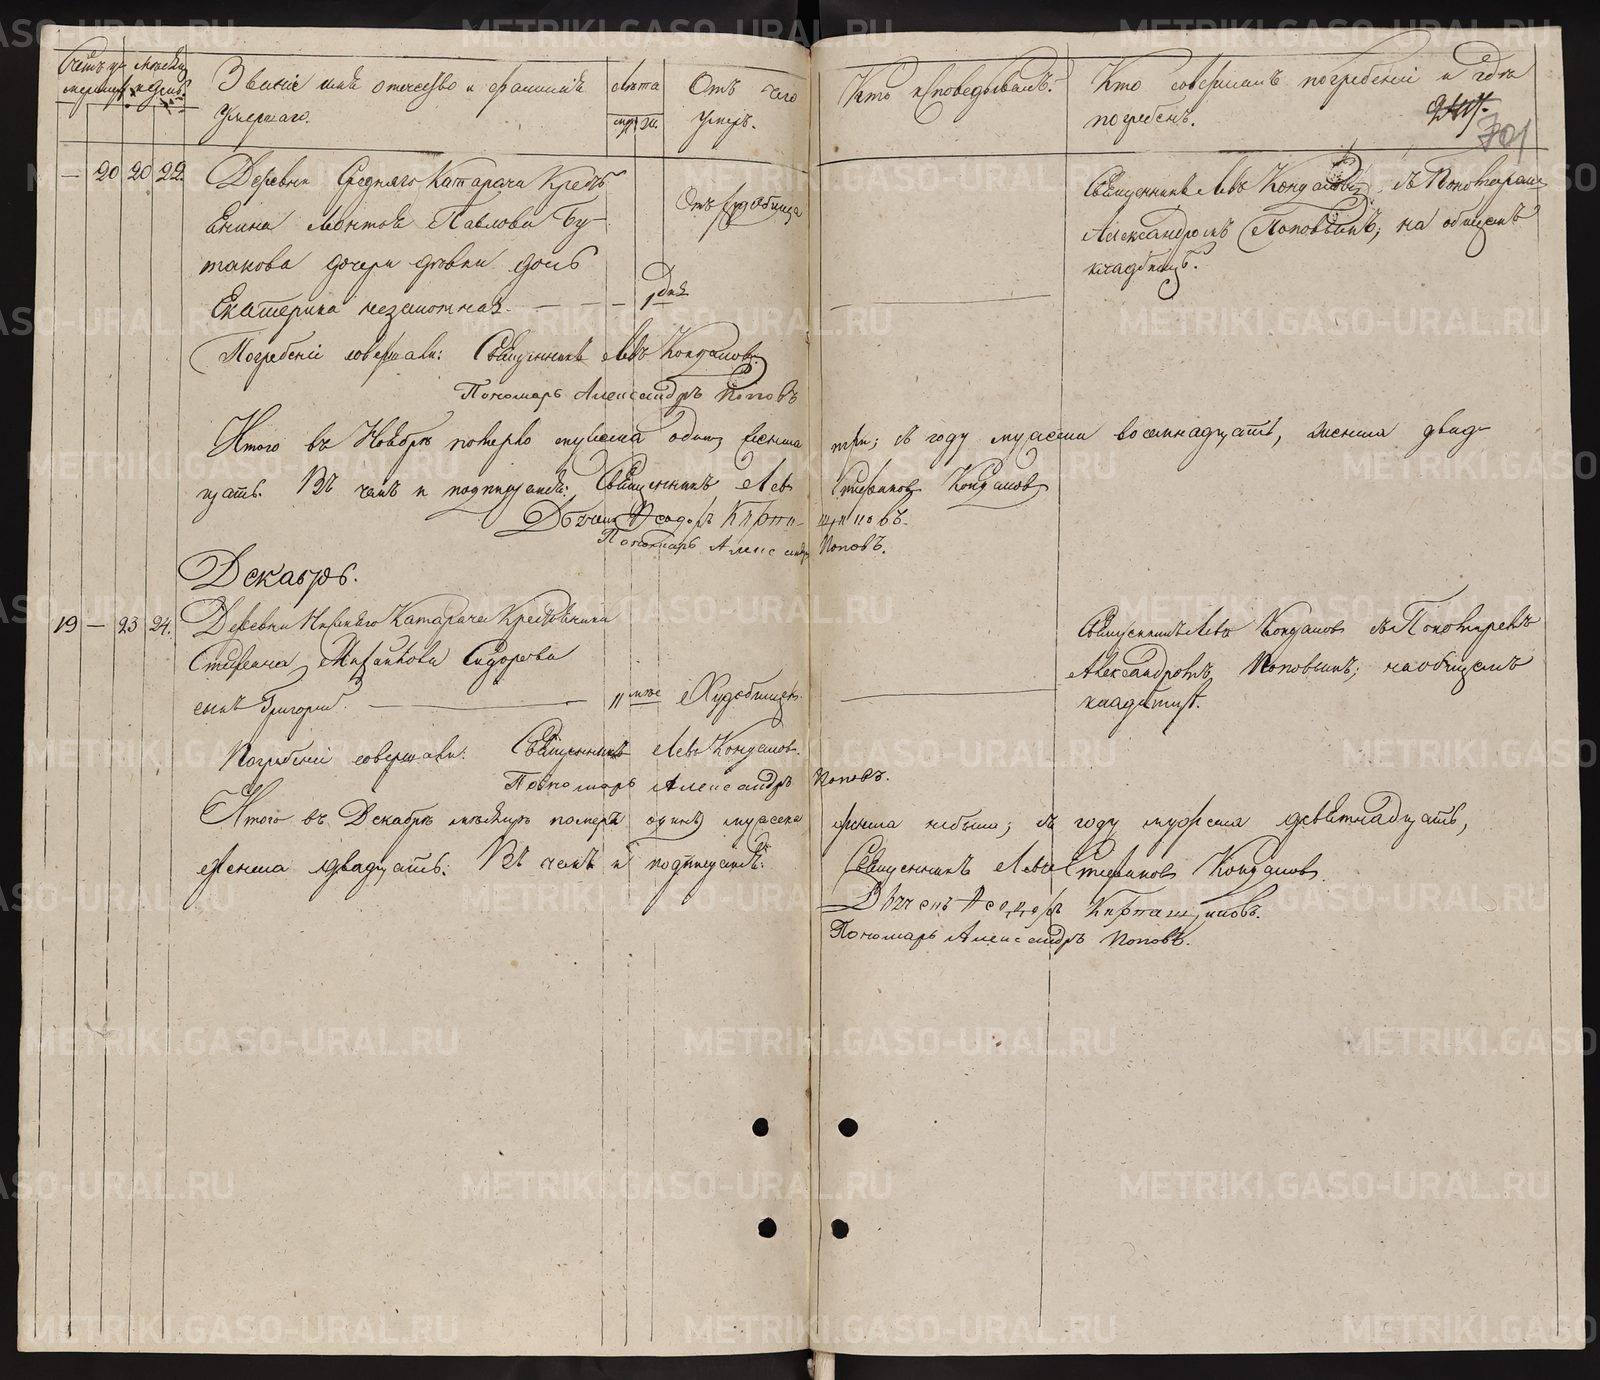 Счетъ умершихъ
Мѣсяцъ и день.
Званіе имя отчество и фамилія
умершаго.
Лѣта
муж. ж.
Отъ чего
умеръ.
Кто исповѣдывалъ.
Кто совершалъ погребеніе и гдѣ
погребенъ.
701
— 20 20 22.
Деревни Средняго Катарача Кресть
янина Павлова Бу-
такова дочери дѣвки дочь
Екатерина незаконная. — — —
1 дня
Отъ родимца
Священникъ Левъ Кондаковъ, съ Пономаремъ
Александромъ Поповымъ; на общемъ
кладбищѣ.
Погребеніе совершали: Священникъ Левъ Кондаковъ
Пономарь Александръ Поповъ
Итого въ Ноябрѣ померло мужеска одинъ, женска три; въ году мужеска восемнадцать, женска двад-
цать. Въ чемъ и подписуемся: Священникъ Левъ Стефановъ Кондаковъ
Дьячекъ Ѳеодоръ Карпинъ
Пономарь Александръ Поповъ.
Декабрь.
19 — 23 24.
Деревни Нижняго Катарача Крестьянина
Стефана Михайлова Сидорова
сынъ Григорій. —
11 мѣс
Худобищей
Священникъ Левъ Кондаковъ съ Пономаремъ
Александромъ Поповымъ; на общемъ
кладбищѣ.
Погребеніе совершали: Священникъ Левъ Кондаковъ.
Пономарь Александръ Поповъ.
Итого въ Декабрѣ мѣсяцѣ померъ одинъ мужеска женска небыло; въ году мужеска девятнадцать,
женска двадцать. Въ чемъ и подписуемся:
Священникъ Левъ Стефановъ Кондаковъ
Дьячекъ Ѳеодоръ
Пономарь Александръ Поповъ.
METRIKI.GASO-URAL.RU